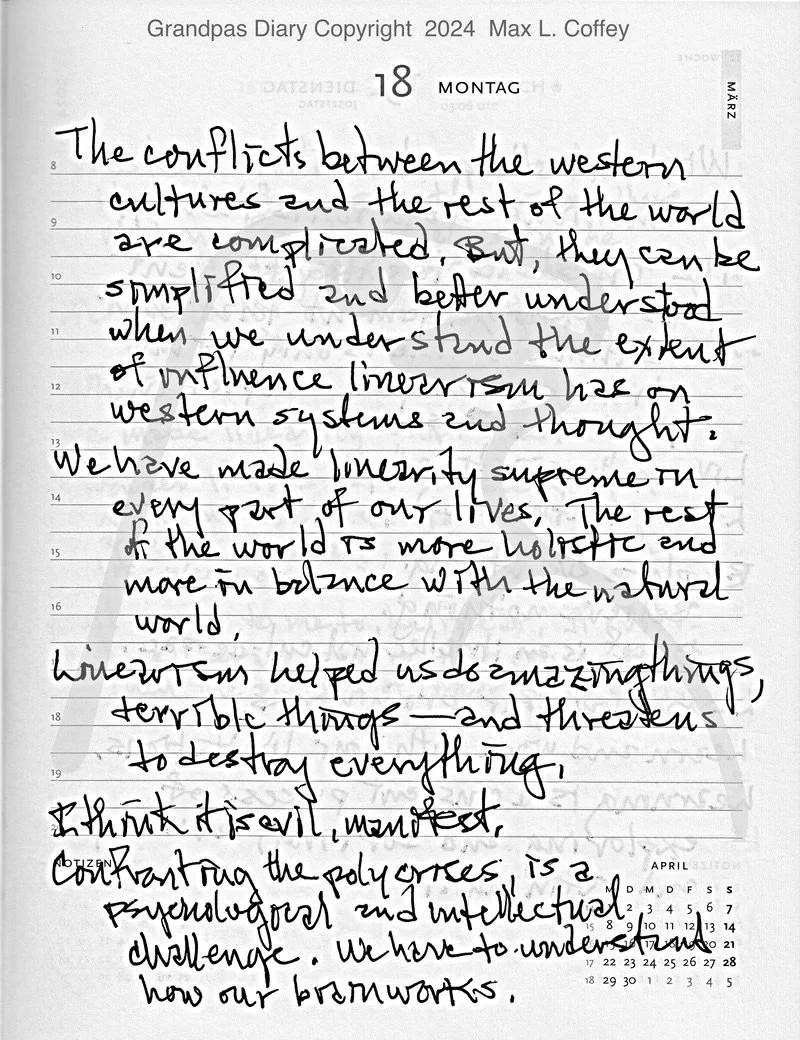 Grandpas Diary Copyright 2024 Max L. Coffey
18 MONTAG
MÄRZ
The conflicts between the western
cultures and the rest of the world
are complicated. But, they can be
simplified and better understood
when we understand the extent
of influence linearism has on
western systems and thought.
We have made linearity supreme in
every part of our lives. The rest
of the world is more holistic and
more in balance with the natural
world.
Linearism helped us do amazing things,
terrible things — and threatens
to destroy everything.
I think it is evil, manifest.
Confronting the polycrises, is a
psychological and intellectual
challenge. We have to understand
how our brain works.
8
9
10
11
12
13
14
15
16
18
19
NOTIZEN
APRIL
M D M D F S S
2 3 4 5 6 7
15 8 9 10 11 12 13 14
20 21
17 22 23 24 25 26 27 28
18 29 30 1 2 3 4 5